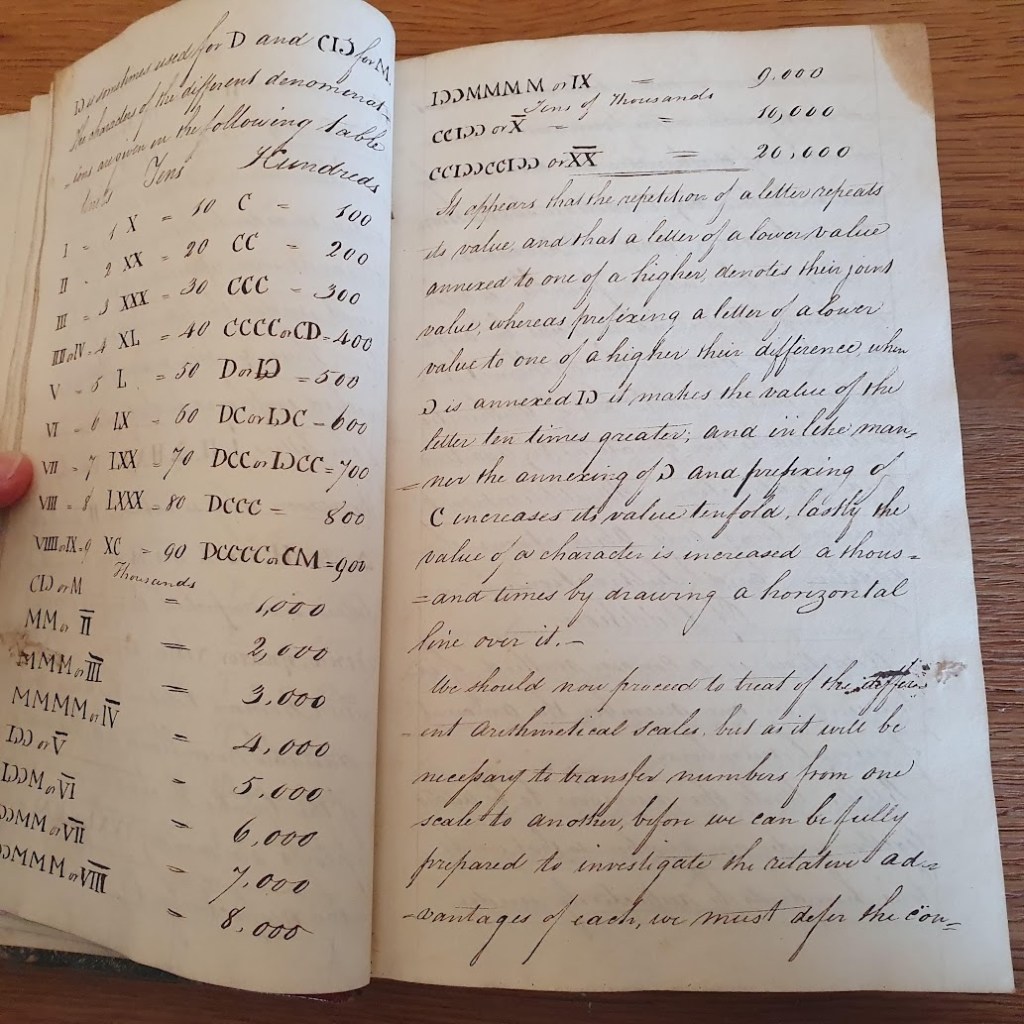 IↃ is sometimes used for D and CIↃ for M.
The characters of the different denominat-
-ions are given in the following table
Units Tens Hundreds
I = 1 X = 10 C = 100
II = 2 XX = 20 CC = 200
III = 3 XXX = 30 CCC = 300
IIII or IV = 4 XL = 40 CCCC or CD = 400
V = 5 L = 50 D or IↃ = 500
VI = 6 LX = 60 DC or IↃC = 600
VII = 7 LXX = 70 DCC or IↃCC = 700
VIII = 8 LXXX = 80 DCCC = 800
VIIII or IX = 9 XC = 90 DCCCC or CM = 900
Thousands
CIↃ or M = 1,000
MM or I̅I̅ = 2,000
MMM or I̅I̅I̅ = 3,000
MMMM or I̅V̅ = 4,000
IↃↃ or V̅ = 5,000
IↃↃM or V̅I̅ = 6,000
ↃↃMM or V̅I̅I̅ = 7,000
ↃↃMMM or V̅I̅I̅I̅ = 8,000
IↃↃMMMM or IX = 9,000
Tens of Thousands
CCIↃↃ or X̅ = 10,000
CCIↃↃCCIↃↃ or X̅X̅ = 20,000
It appears that the repetition of a letter repeats
its value, and that a letter of a lower value
annexed to one of a higher, denotes their joint
value, whereas prefixing a letter of a lower
value to one of a higher their difference, when
Ↄ is annexed IↃ it makes the value of the
letter ten times greater; and in like man-
=ner the annexing of Ↄ and prefixing of
C increases its value tenfold, lastly the
value of a character is increased a thous=
=and times by drawing a horizontal
line over it.-
We should now proceed to treat of the differ
-ent arithmetical scales, but as it will be
necessary to transfer numbers from one
scale to another, before we can be fully
prepared to investigate the relative ad=
-vantages of each, we must defer the con=